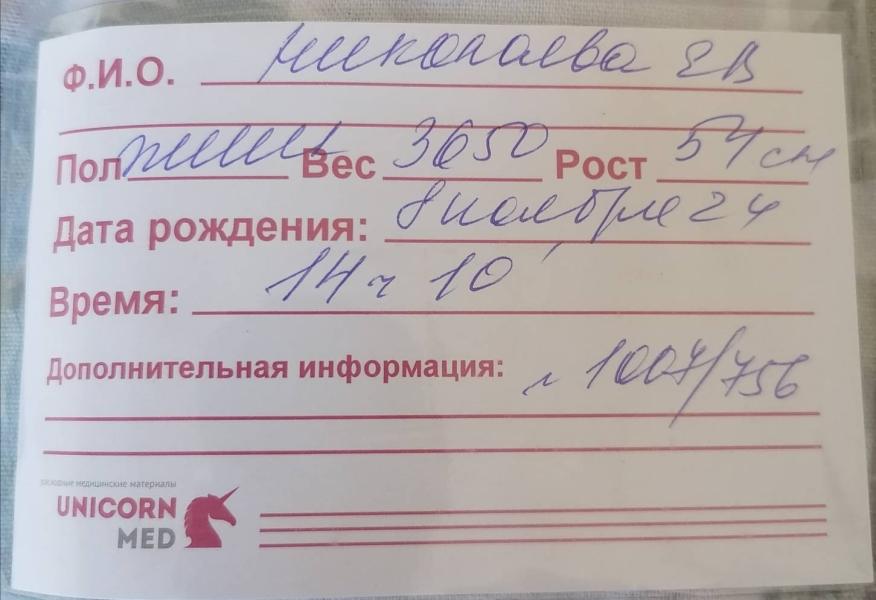 Ф.И.О. Николаева ЕВ
Пол жен Вес 3650 Рост 54 см
Дата рождения: 8 ноября 24
Время: 14 ч 10'
Дополнительная информация: 1007/756
расходные медицинские материалы
UNICORN
MED